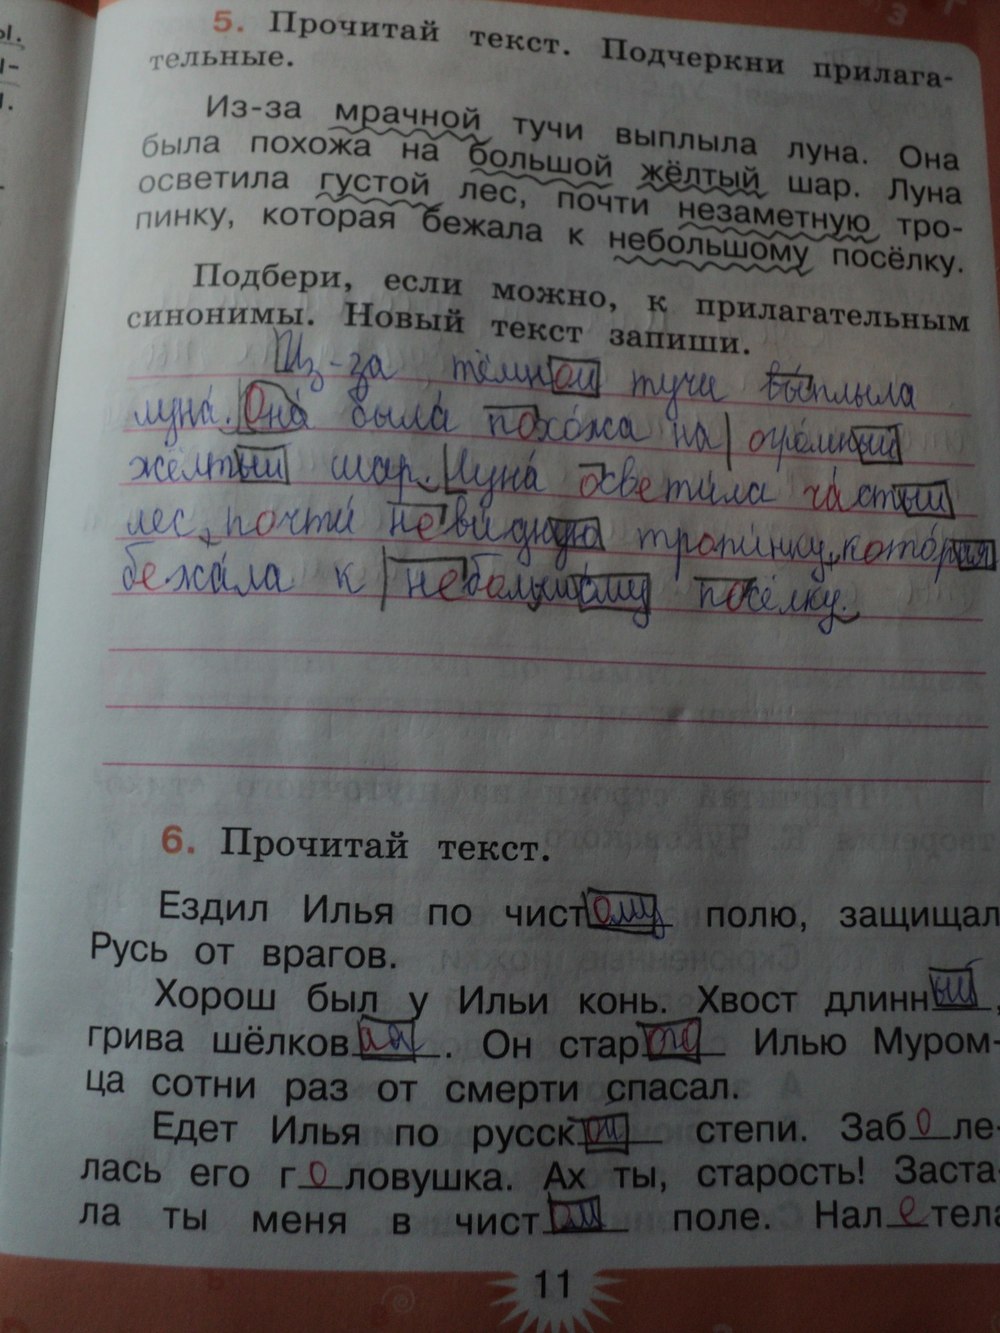 5. Прочитай текст. Подчеркни прилага-
тельные.
Из-за мрачной тучи выплыла луна. Она
была похожа на большой жёлтый шар. Луна
осветила густой лес, почти незаметную тро-
пинку, которая бежала к небольшому посёлку.
Подбери, если можно, к прилагательным
синонимы. Новый текст запиши.
Из-за тёмной тучи выплыла
луна́. Она́ была́ похо́жа на огро́мный
жёлтый шар. Луна́ освети́ла ча́стый
лес, почти́ неви́дную тропи́нку, кото́рая
бежа́ла к небольшо́му посёлку.
6. Прочитай текст.
Ездил Илья по чистому полю, защищал
Русь от врагов.
Хорош был у Ильи конь. Хвост длинный,
грива шёлковая. Он старого Илью Муром-
ца сотни раз от смерти спасал.
Едет Илья по русской степи. Заболе-
лась его головушка. Ах ты, старость! Заста-
ла ты меня в чистом поле. Налетела
11